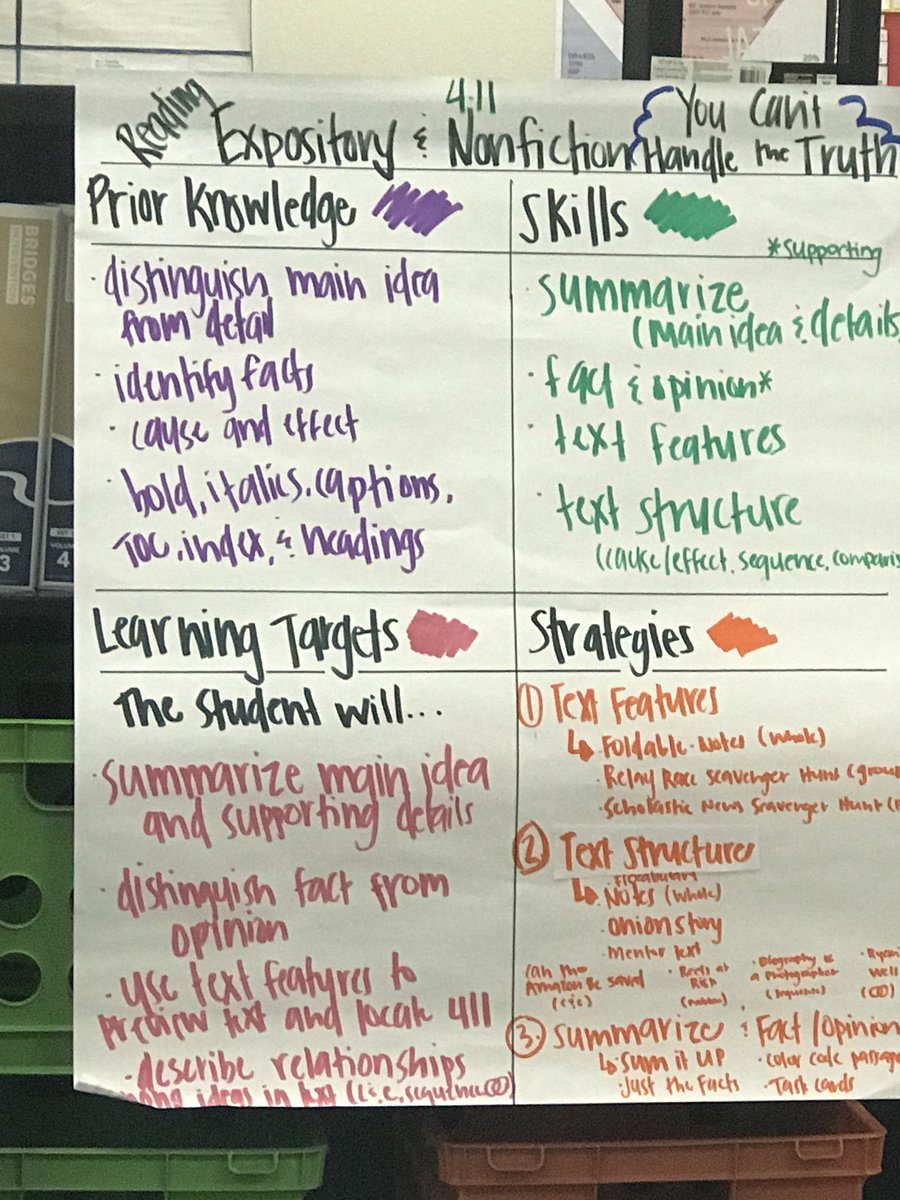 4.11
Reading
Expository & Nonfiction
You Can't
Handle the Truth
Prior Knowledge
· distinguish main idea
from detail
· identify facts
· cause and effect
· bold, italics, captions,
TOC, index, & headings
Skills
*supporting
· summarize
(main idea & details
· fact & opinion*
· text features
· text structure
(cause/effect, sequence, comparis
Learning Targets
The student will...
· summarize main idea
and supporting details
· distinguish fact from
opinion
· use text features to
preview text and locate 411
· describe relationships
among ideas in text (
Strategies
① Text Features
↳ · Foldable Notes (whole)
· Relay Race Scavenger Hunt (grou
· Scholastic News Scavenger Hunt (
② Text Structure
↳ · Notes (whole)
· onion story
· mentor text
Can the
Amazon Be Saved
(C/E)
· Reefs at
Risk
· Biography of
a Photographer
③ Summarize & Fact/Opinion
↳ · Sum it up
· Just the Facts
· color code passage
· Task cards
BRIDGES
3
4
20%